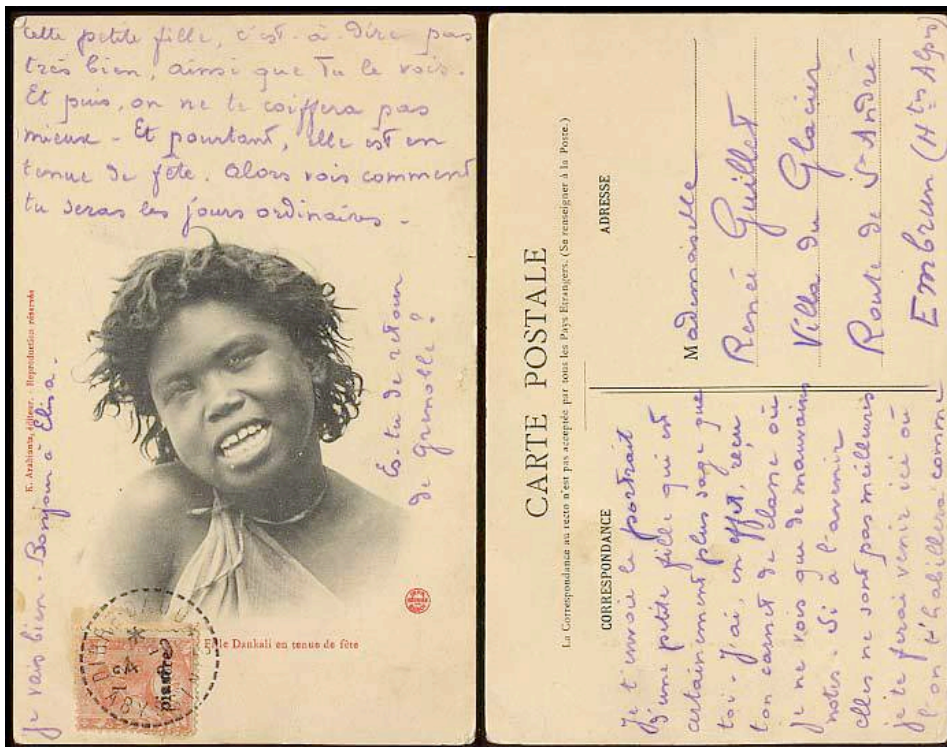 Cette petite fille, c'est-à-dire pas
très bien, ainsi que tu le vois.
Et puis, on ne te coiffera pas
mieux - Et pourtant, elle est en
tenue de fête. Alors vois comment
tu seras les jours ordinaires -
Es-tu de retour
de Grenoble?
Je vais bien - Bonjour à Elisa.
K. Arabiantz, éditeur. - Reproduction réservée
Fille Dankali en tenue de fête
piastre
CARTE POSTALE
La Correspondance au recto n'est pas acceptée par tous les Pays Etrangers. (Se renseigner à la Poste.)
CORRESPONDANCE
ADRESSE
Je t'envoie le portrait
d'une petite fille qui est
certainement plus sage que
toi - J'ai, en effet, reçu
ton carnet de classe où
je ne vois que de mauvaises
notes. Si à l'avenir
elles ne sont pas meilleures
je te ferai venir ici où
l'on t'habillera comme
Mademoiselle
Renée Guillet
Villa du Glacier
Route de St André
Embrun (Htes Alpes)